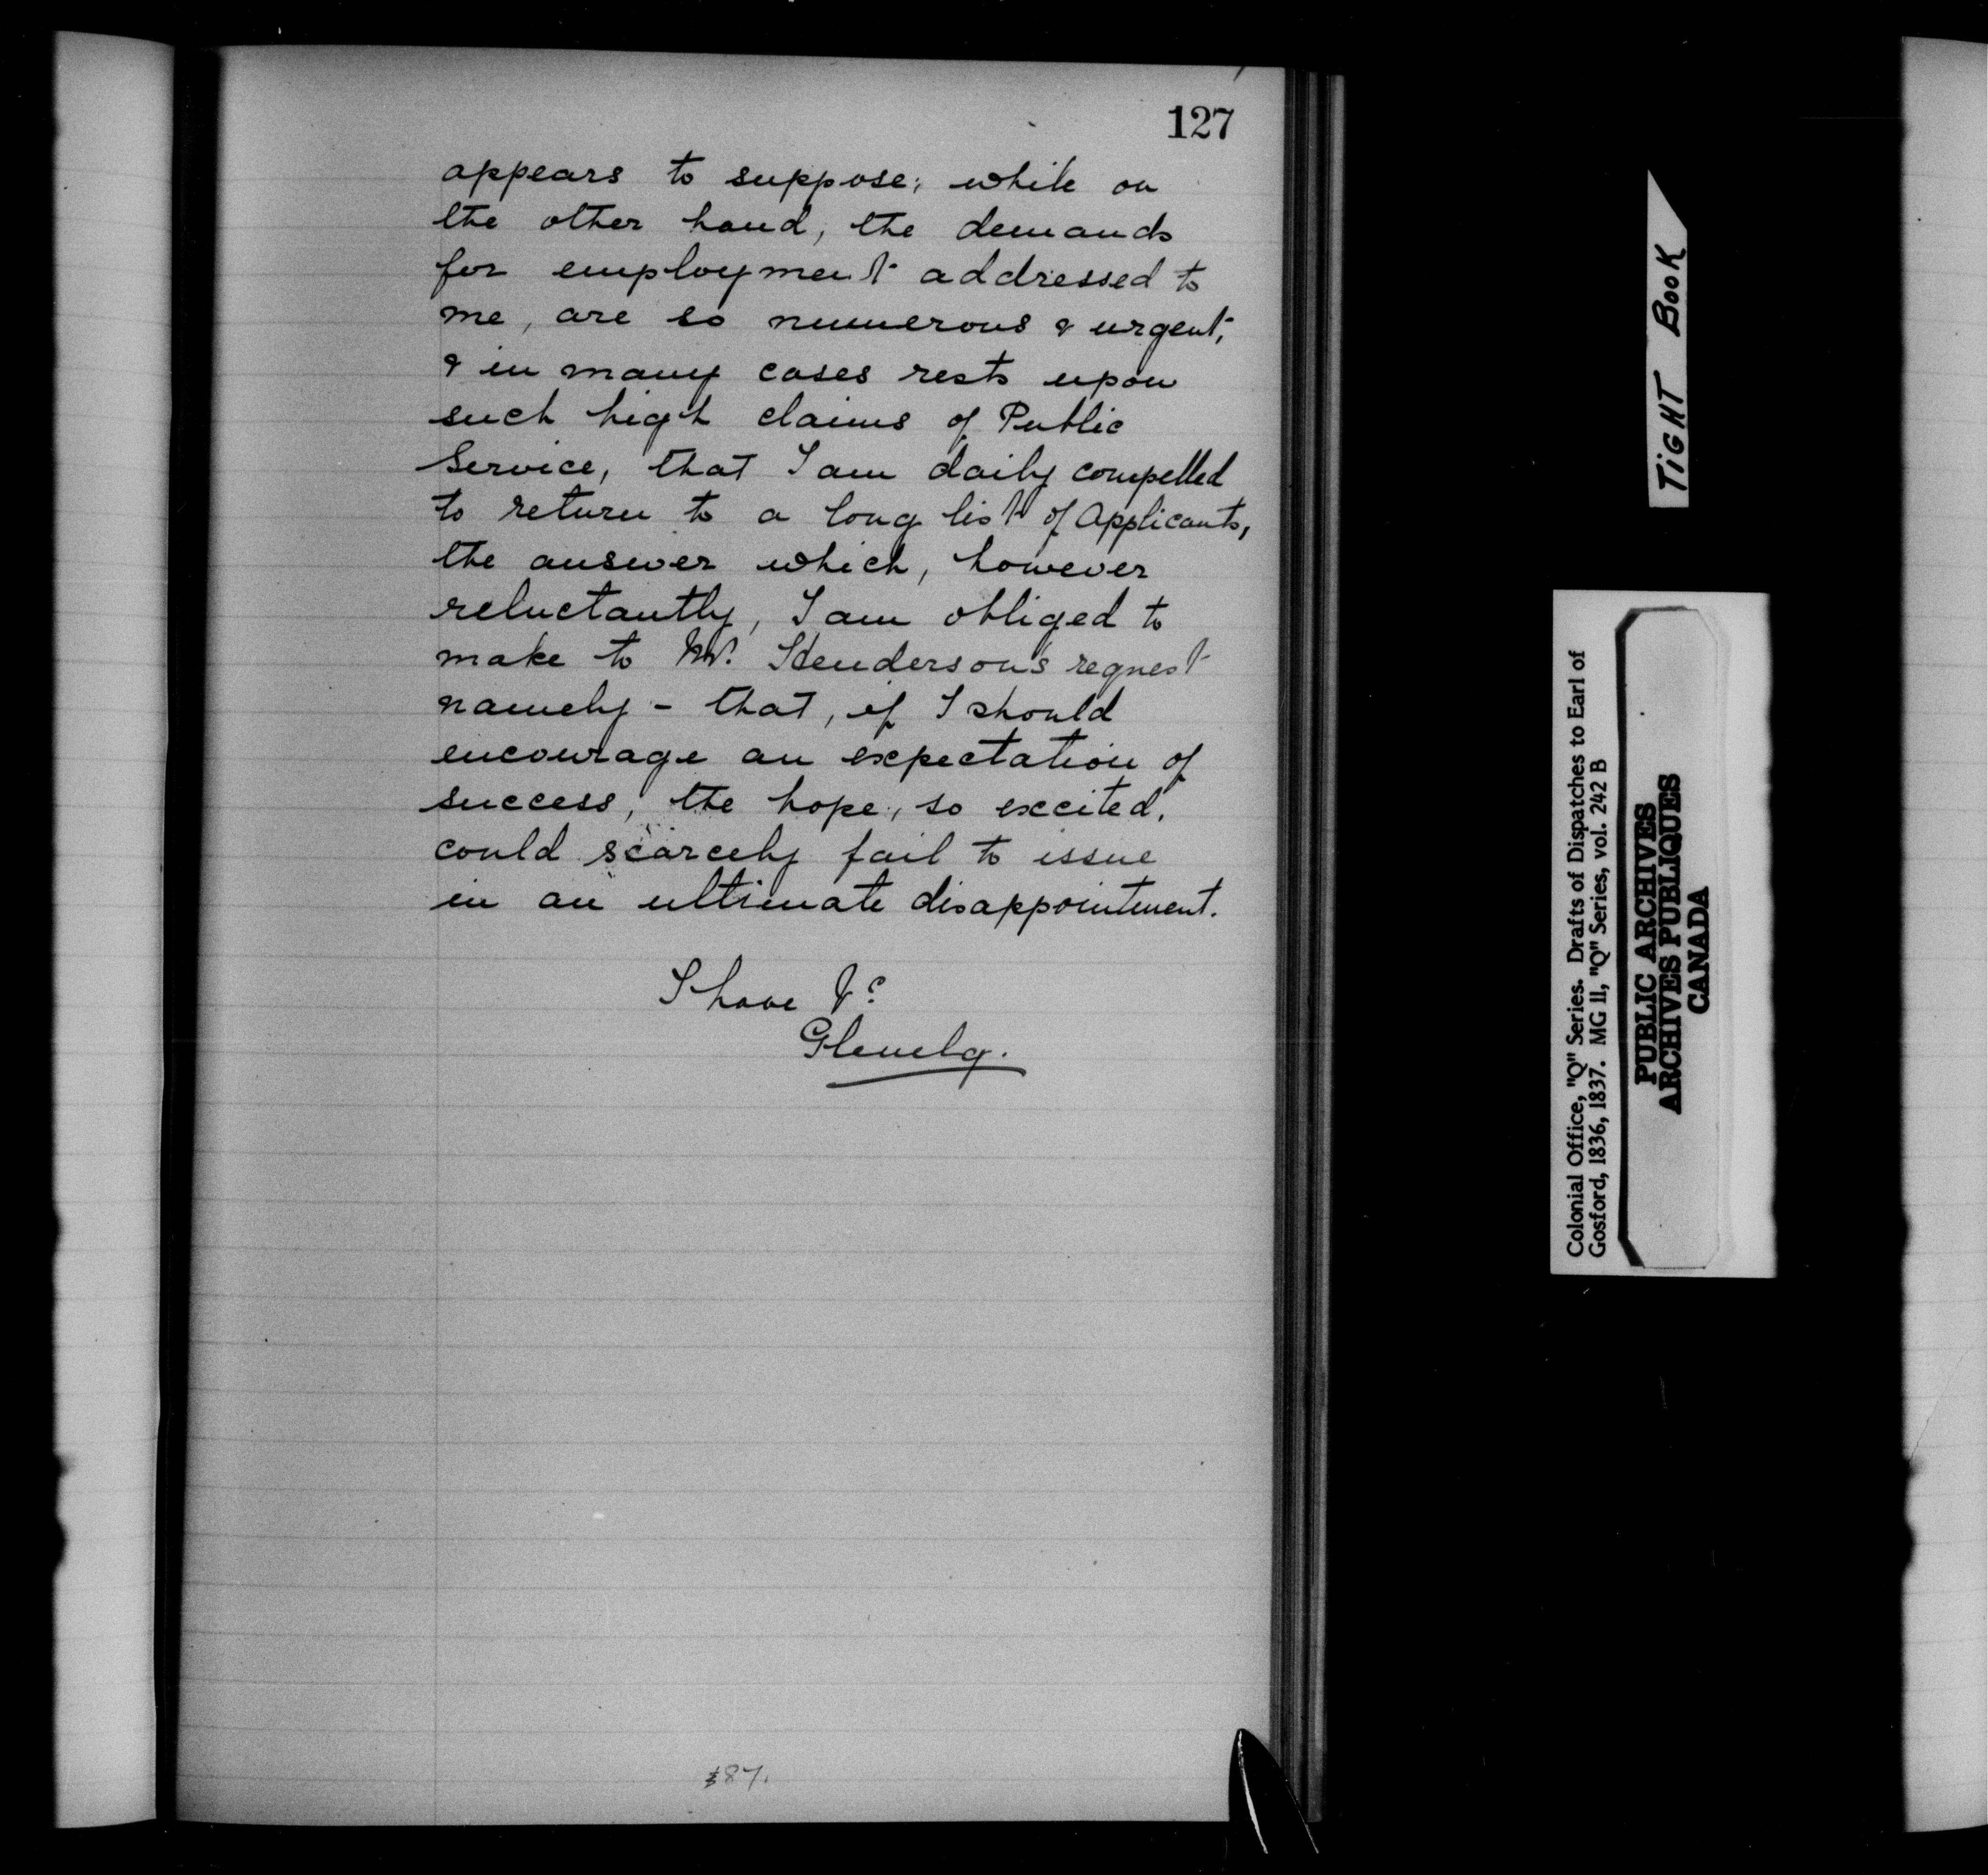 127
appears to suppose; while on
the other hand, the demands
for employment addressed to
me, are so numerous & urgent,
& in many cases rests upon
such high claims of Public
Service, that I am daily compelled
to return to a long list of Applicants,
the answer which, however
reluctantly, I am obliged to
make to Mr. Henderson's request
namely - that, if I should
encourage an expectation of
success, the hope, so excited,
could scarcely fail to issue
in an ultimate disappointment.
I have &c
Glenelg.
TIGHT BOOK
Colonial Office, "Q" Series. Drafts of Dispatches to Earl of
Gosford, 1836, 1837. MG 11, "Q" Series, vol. 242 B
PUBLIC ARCHIVES
ARCHIVES PUBLIQUES
CANADA